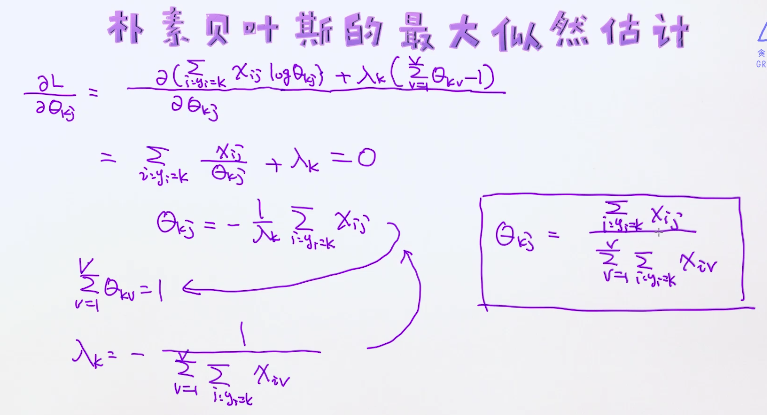 朴素贝叶斯的最大似然估计
∂L/∂θkj = ∂(∑i:yi=k xij logθkj) + λk(∑v=1^V θkv-1) / ∂θkj
= ∑i:yi=k xij/θkj + λk = 0
θkj = - 1/λk ∑i:yi=k xij
∑v=1^V θkv = 1
λk = - 1/∑v=1^V ∑i:yi=k xiv
θkj = ∑i:yi=k xij / ∑v=1^V ∑i:yi=k xiv
GR